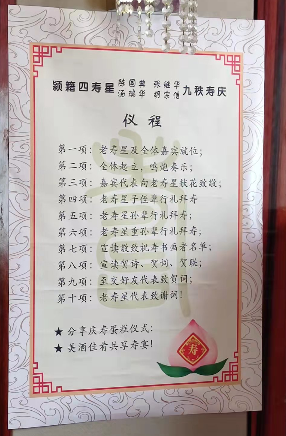 颍籍四寿星 陈国典 张继华 汤瑞华 胡宗信 九秩寿庆
仪 程
第一项：老寿星及全体嘉宾就位；
第二项：全体起立，鸣炮奏乐；
第三项：嘉宾代表向老寿星献花致敬；
第四项：老寿星子侄辈行礼拜寿
第五项：老寿星孙辈行礼拜寿；
第六项：老寿星重孙辈行礼拜寿；
第七项：宣读致敬祝寿书画者名单；
第八项：宣读贺诗、贺词、贺联；
第九项：至交好友代表致贺词；
第十项：老寿星代表致谢词！
★分享庆寿蛋糕仪式；
★美酒佳肴共享寿宴！
寿